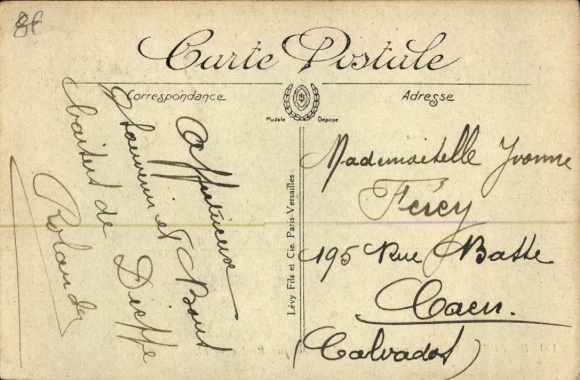 8f
Carte Postale
Correspondance
Adresse
Modèle Déposé
Affectueux
souvenir et Bons
baisers de Dieppe
Rolande
Lévy, Fils et Cie. Paris-Versailles
Mademoiselle Yvonne
Férey
195 Rue Basse
Caen.
(Calvados)